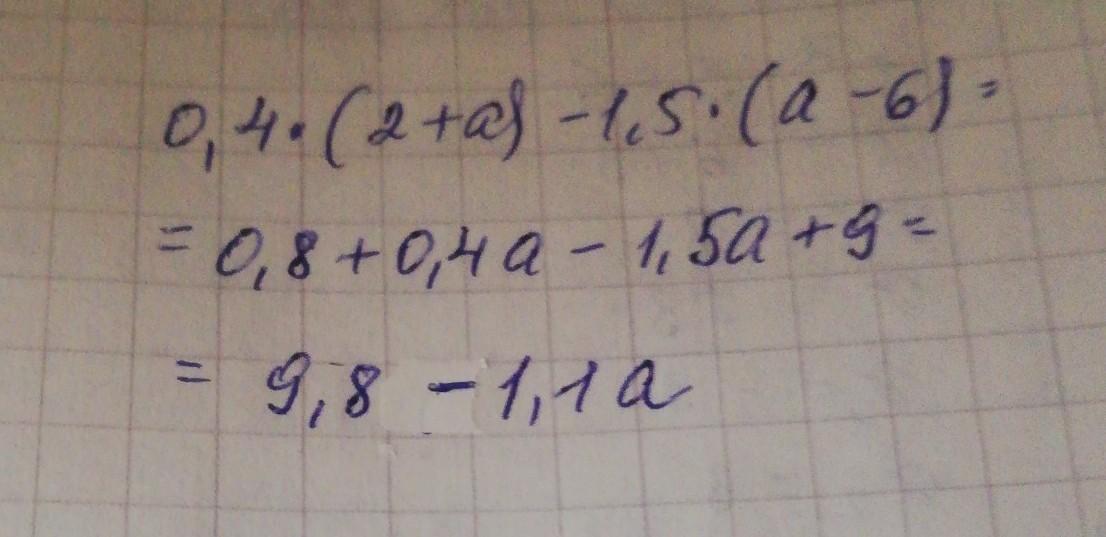 0,4·(2+a) -1,5·(a -6) =
= 0,8+0,4a - 1,5a +9 =
= 9,8 - 1,1a